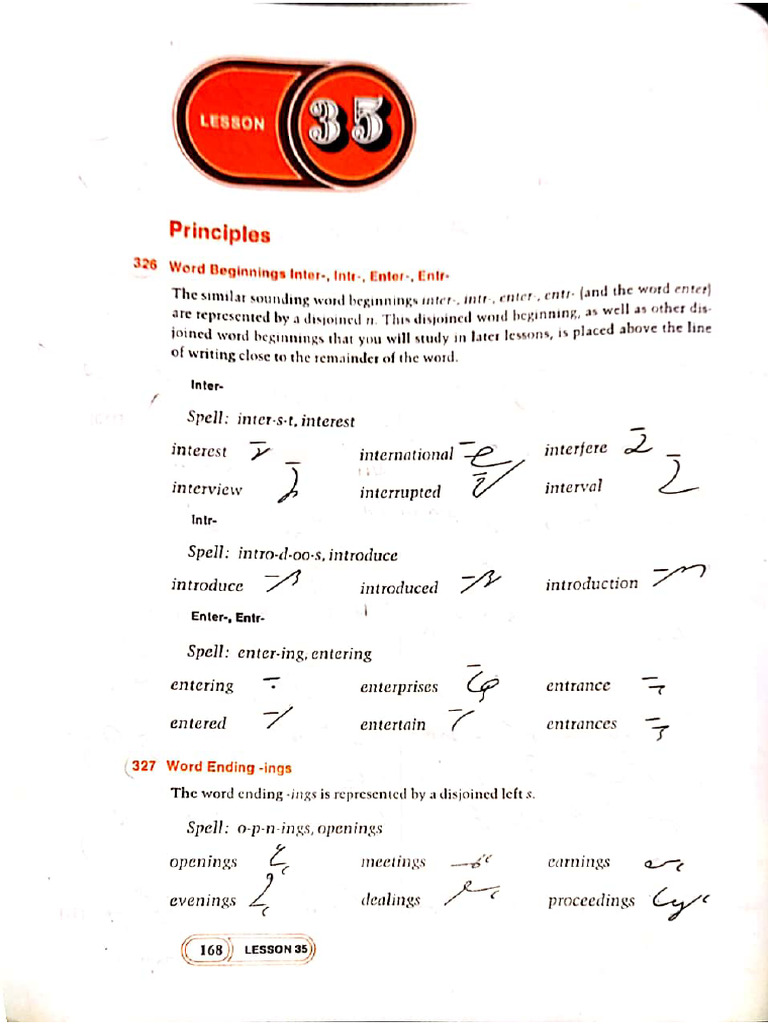 LESSON 35
Principles
326 Word Beginnings Inter-, Intr-, Enter-, Entr-
The similar sounding word beginnings inter-, intr-, enter-, entr- (and the word enter)
are represented by a disjoined n. This disjoined word beginning, as well as other dis-
joined word beginnings that you will study in later lessons, is placed above the line
of writing close to the remainder of the word.
Inter-
Spell: inter-s-t, interest
interest international interfere
interview interrupted interval
Intr-
Spell: intro-d-oo-s, introduce
introduce introduced introduction
Enter-, Entr-
Spell: enter-ing, entering
entering enterprises entrance
entered entertain entrances
327 Word Ending -ings
The word ending -ings is represented by a disjoined left s.
Spell: o-p-n-ings, openings
openings meetings earnings
evenings dealings proceedings
168 LESSON 35